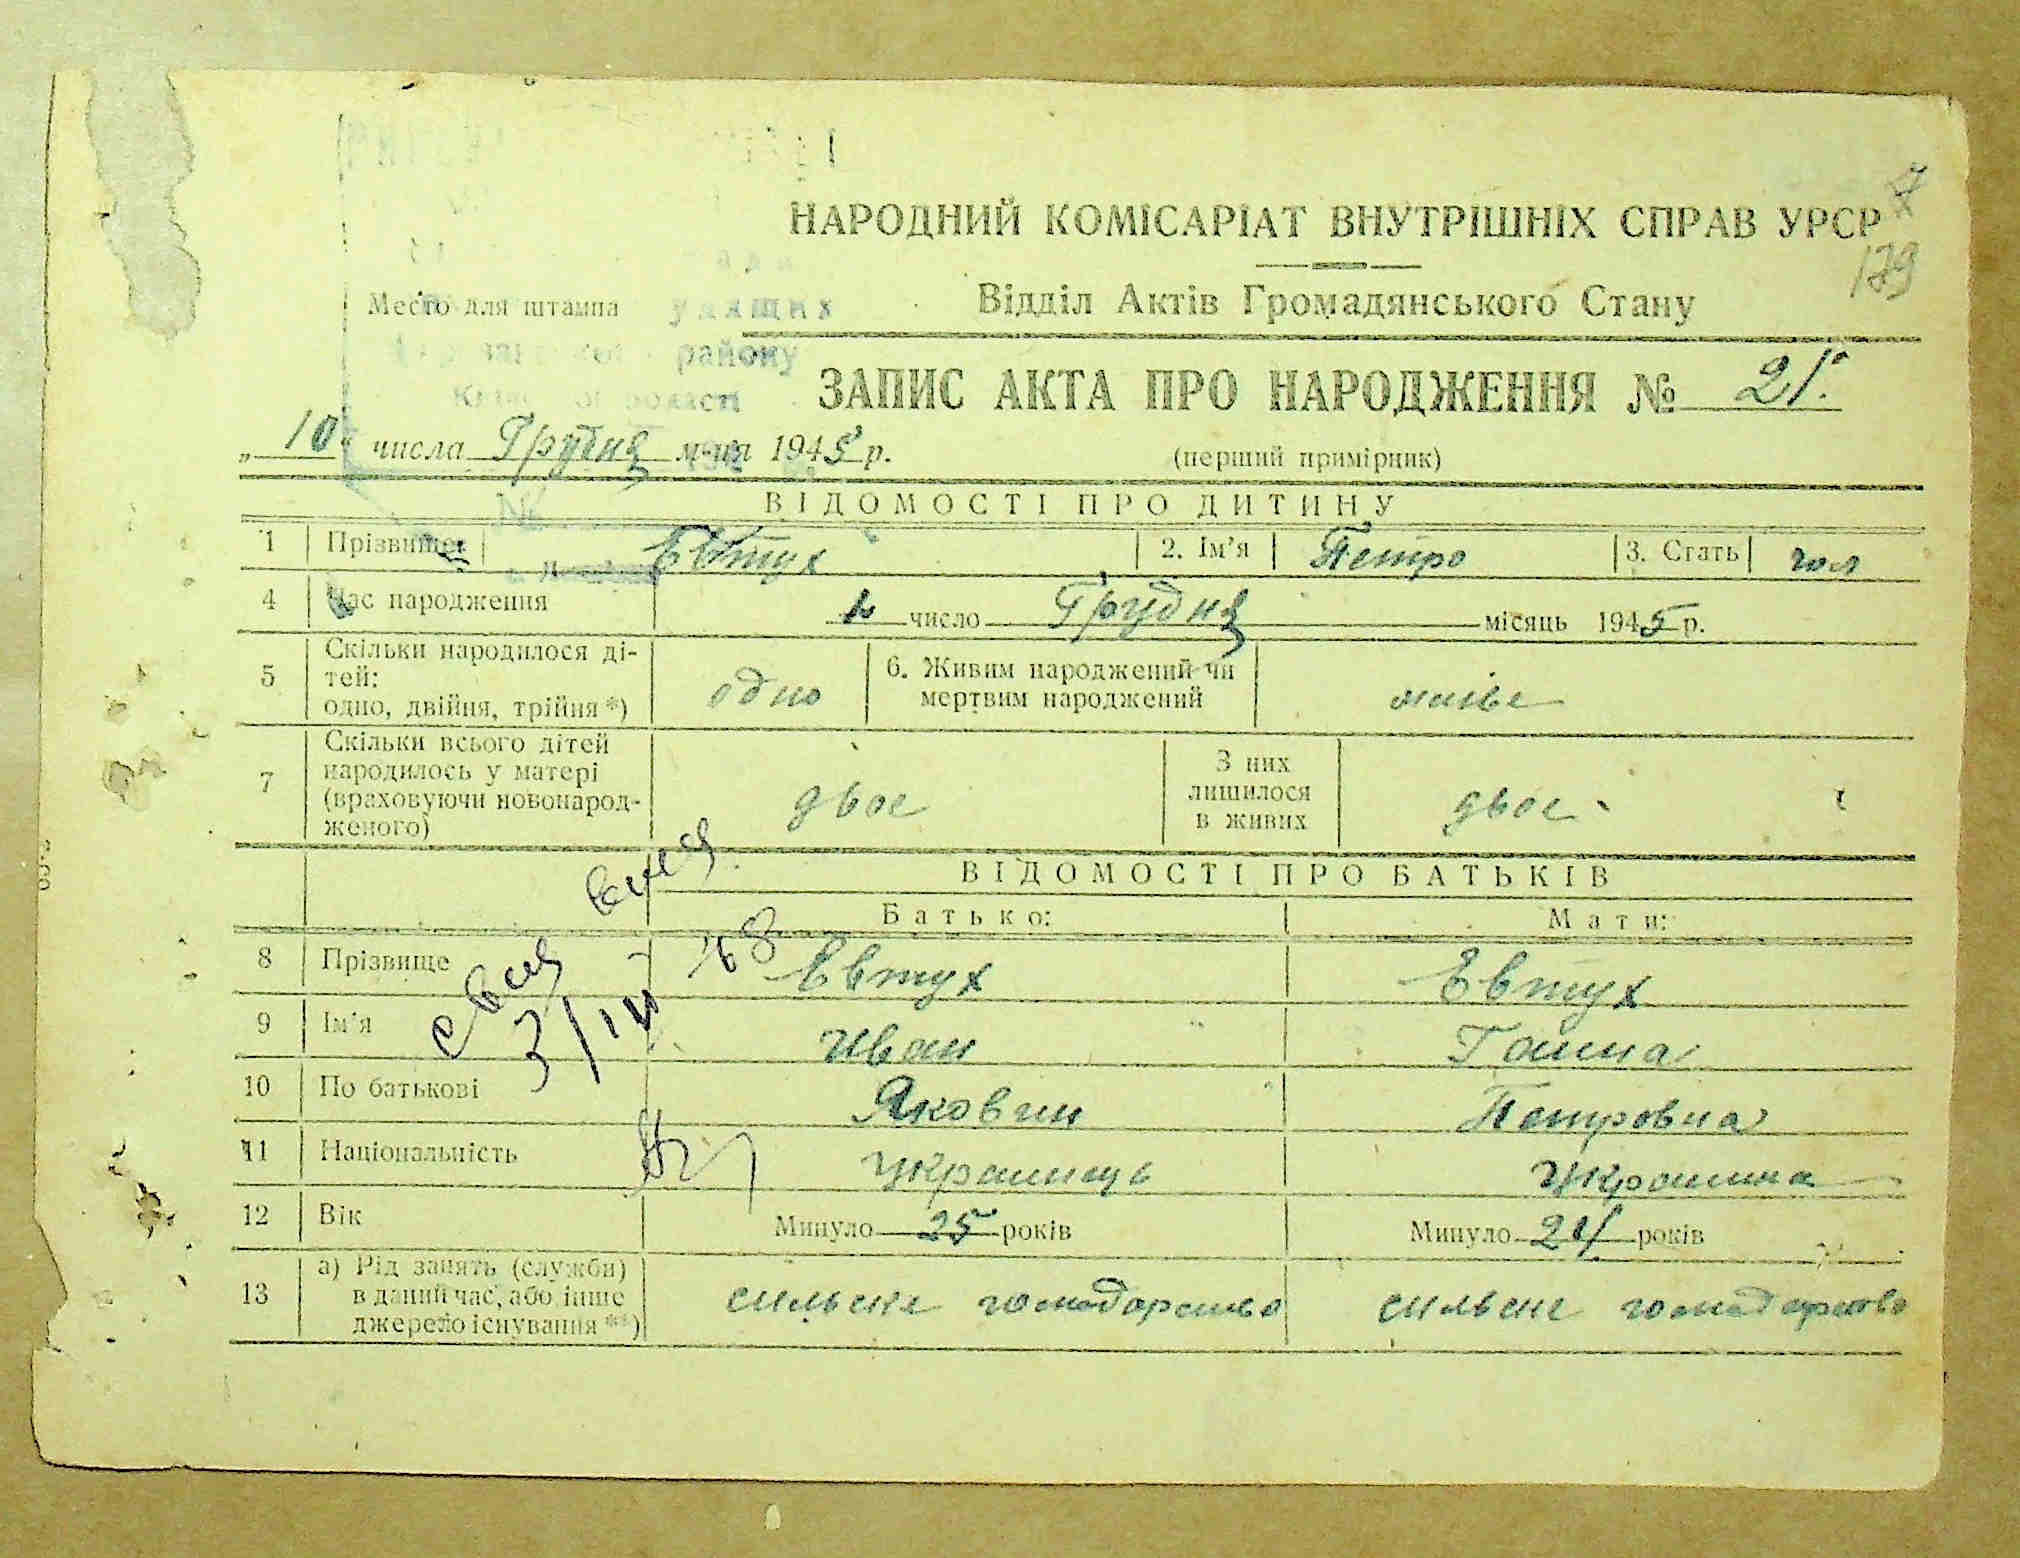 7
179
НАРОДНИЙ КОМІСАРІАТ ВНУТРІШНІХ СПРАВ УРСР
Відділ Актів Громадянського Стану
Место для штампа
району
ЗАПИС АКТА ПРО НАРОДЖЕННЯ № 21.
„10" числа Грудня м-ця 1945 р.
(перший примірник)
№
ВІДОМОСТІ ПРО ДИТИНУ
1 Прізвище Евтух 2. Ім'я Петро 3. Стать чол
4 Час народження число Грудня місяць 1945 р.
5 Скільки народилося ді-
тей:
одно, двійня, трійня *) одно 6. Живим народжений чи
мертвим народжений живе
7 Скільки всього дітей
народилось у матері
(враховуючи новонарод-
женого) двое З них
лишилося
в живих двое
ВІДОМОСТІ ПРО БАТЬКІВ
Батько: Мати:
8 Прізвище Евтух Евтух
9 Ім'я Иван Ганна
10 По батькові Якович Петровна
11 Національність Украинець Украинка
12 Вік Минуло 25 років Минуло 24 років
13 а) Рід занять (служби)
в даний час, або інше
джерело існування **) сильске господарство сильске господарство